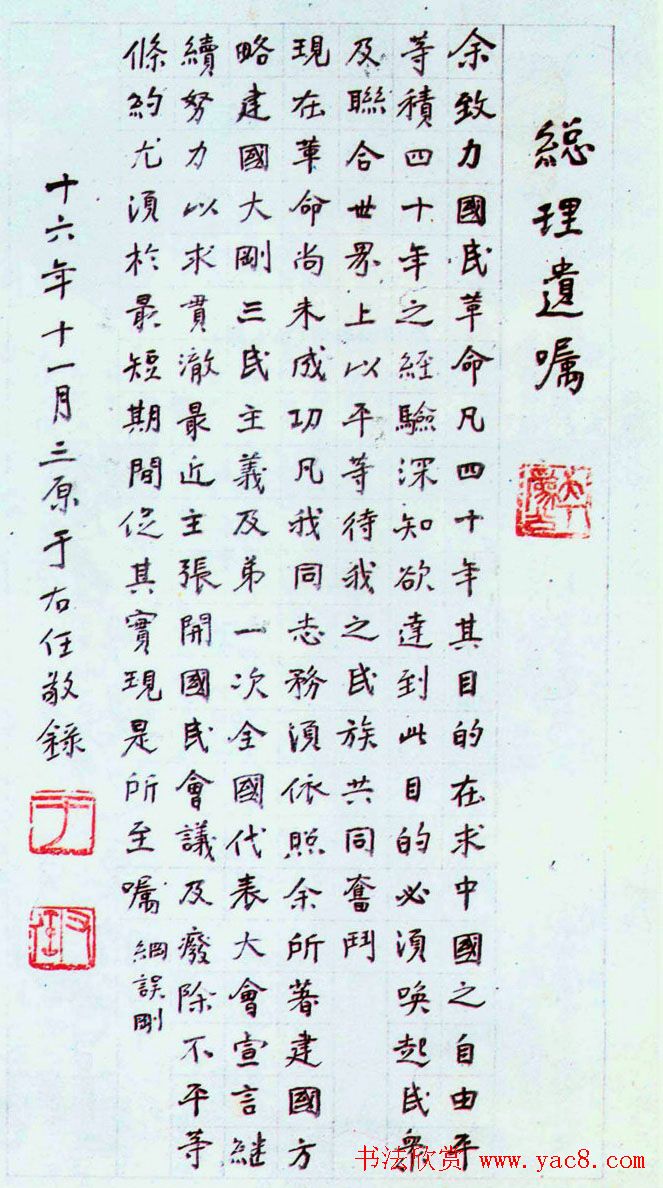 總理遺嘱
余致力國民革命凡四十年其目的在求中國之自由平
等積四十年之經驗深知欲達到此目的必須喚起民眾
及聯合世界上以平等待我之民族共同奮鬥
現在革命尚未成功凡我同志務須依照余所著建國方
略建國大剛三民主義及弟一次全國代表大會宣言继
續努力以求貫澈最近主張開國民會議及廢除不平等
條約尤須於最短期間促其實現是所至嘱
綱誤剛
十六年十一月三原于右任敬錄
于
右任
书法欣赏 www.yac8.com